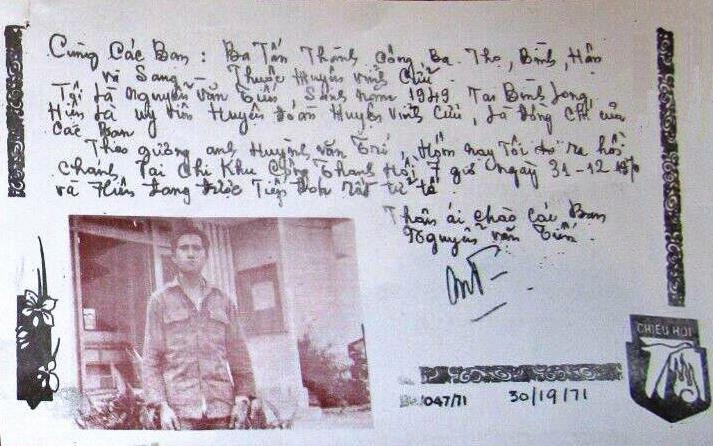 Cùng Các Bạn : Ba Tấn Thành Công, Ba Thọ, Bình, Hân
và Sang – Thuộc Huyện Vĩnh Cửu.
Tôi là Nguyễn Văn Tiến, Sanh năm 1949 Tại Bình Long,
Hiện là uỷ viên Huyện Đoàn Huyện Vĩnh Cửu, là đồng chí của
Các Bạn
Theo gương anh Huỳnh Văn Trí, Hôm nay Tôi đã ra hồi
chánh Tại Chi Khu Công Thanh Hồi 7 giờ Ngày 31-12-1970
và Hiện đang được Tiếp Đón rất tử tế.
Thân ái chào các Bạn
Nguyễn Văn Tiến.
CHIÊU HỒI
/047/71 30/19/71